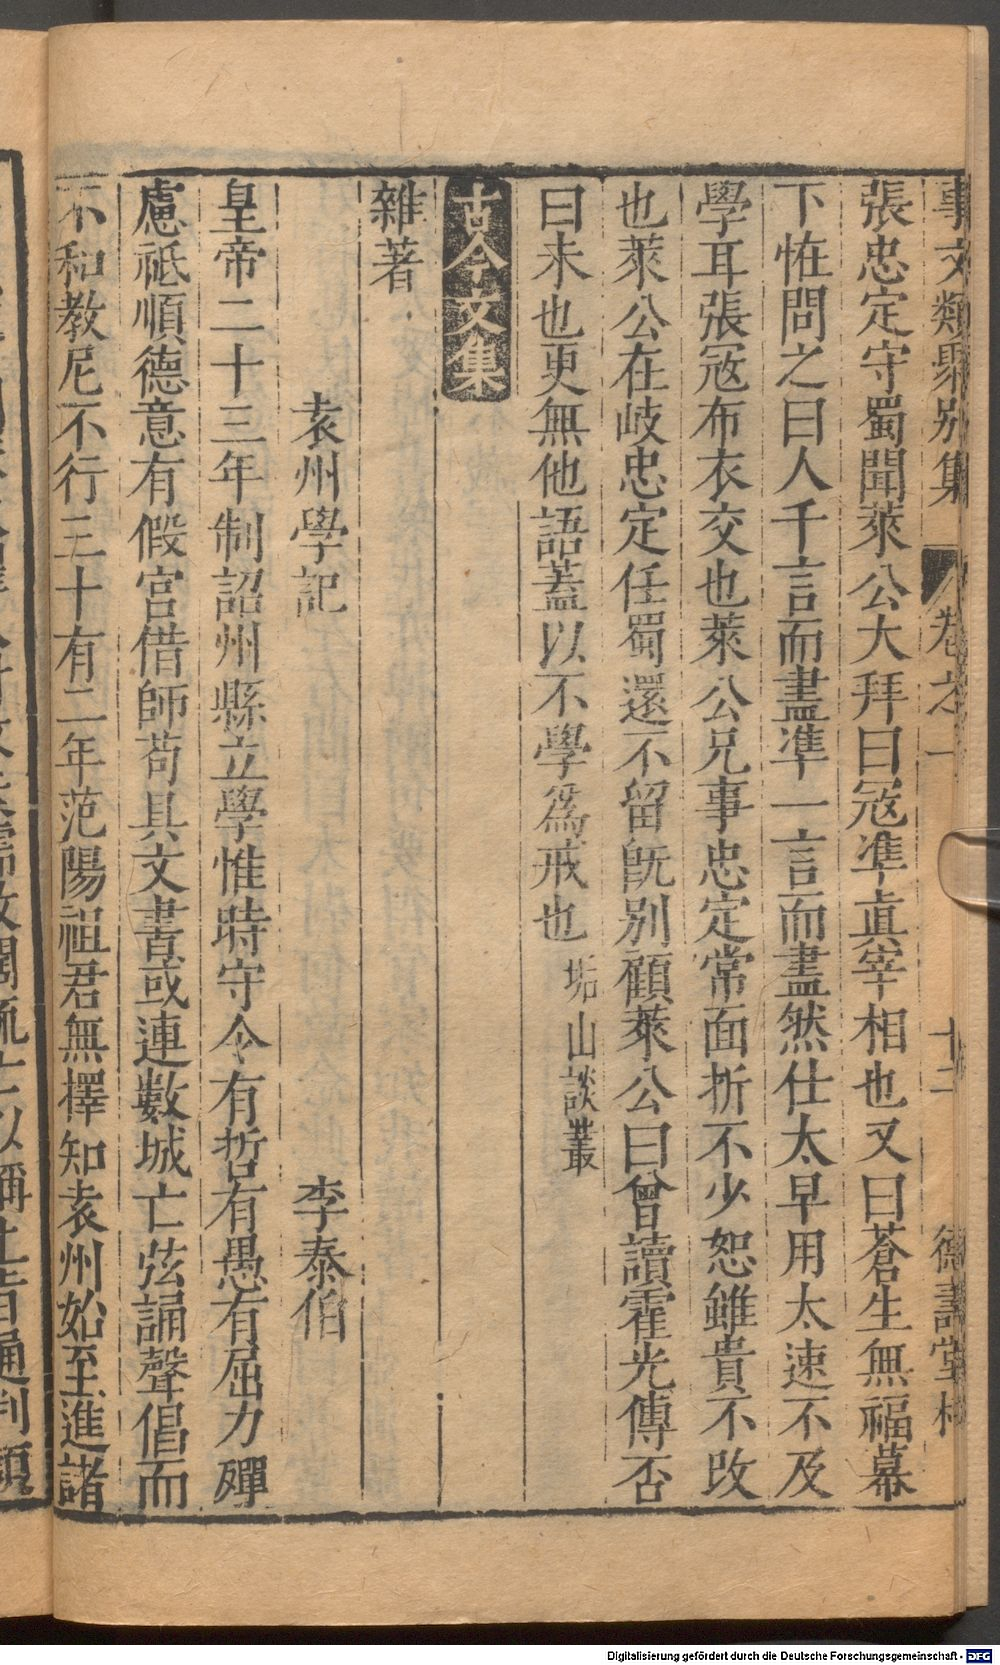 事文類聚別集 卷之一 十二 德壽堂梓
張忠定守蜀聞萊公大拜曰冦準真宰相也又曰蒼生無福幕
下恠問之曰人千言而盡準一言而盡然仕太早用太速不及
學耳張冦布衣交也萊公兄事忠定常面折不少恕雖貴不改
也萊公在岐忠定任蜀還不留旣別顧萊公曰曾讀霍光傳否
曰未也更無他語蓋以不學爲戒也 垢山談叢
古今文集
雜著
袁州學記 李泰伯
皇帝二十三年制詔州縣立學惟時守令有哲有愚有屈力殫
慮祗順德意有假官借師苟具文書或連數城亡弦誦聲倡而
不和教尼不行三十有二年范陽祖君無擇知袁州始至進諸
Digitalisierung gefördert durch die Deutsche Forschungsgemeinschaft - DFG